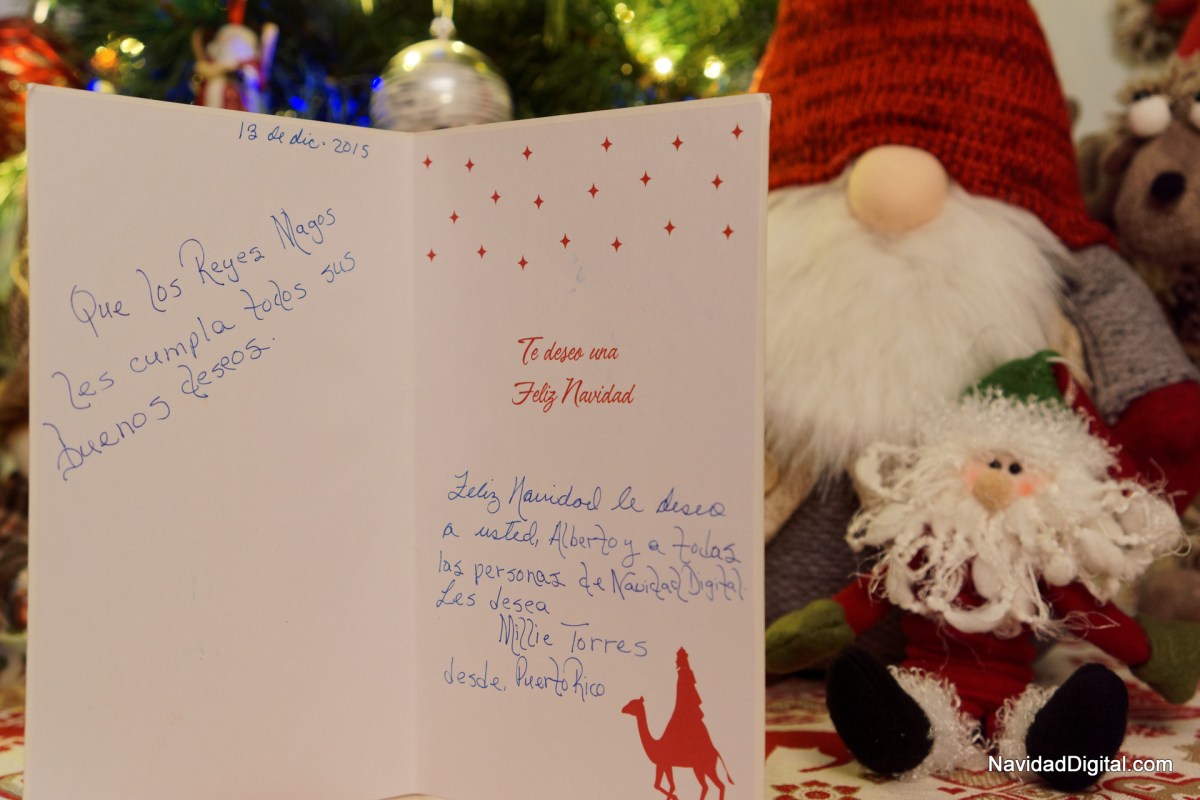 13 de dic. 2015
Que los Reyes Magos
les cumpla todos sus
buenos deseos.
Te deseo una
Feliz Navidad
Feliz Navidad le desea
a usted, Alberto y a todas
las personas de Navidad Digital.
Les desea
Millie Torres
desde, Puerto Rico
NavidadDigital.com